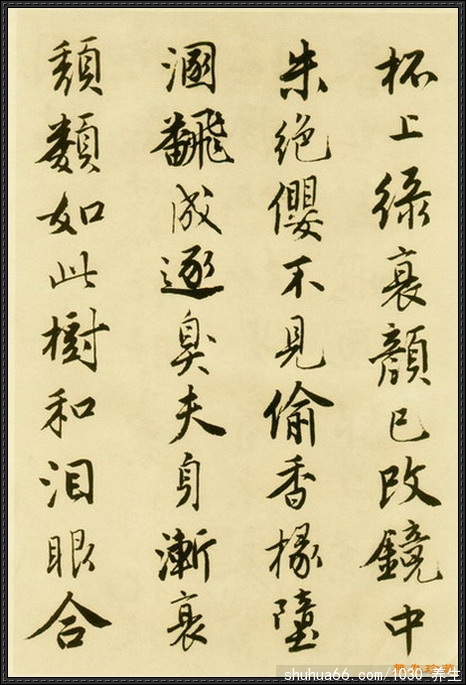 杯上緑衰顏已改鏡中
朱絕纓不見偷香掾墮
溷飜成逐臭夫身漸衰
頹類如此樹和泪眼合
shuhua66.com/1030 养生